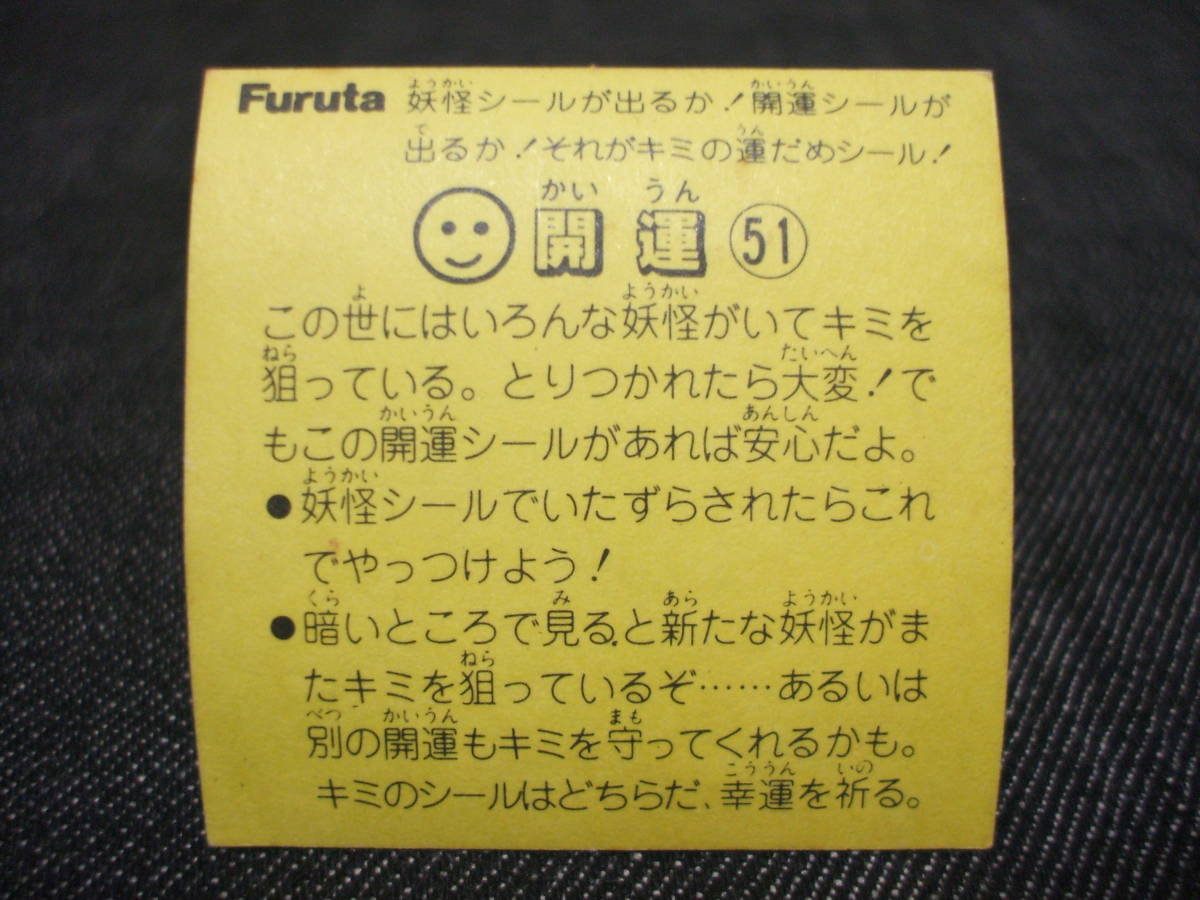 Furuta 妖怪シールが出るか！開運シールが
出るか！それがキミの運だめシール！
開運 51
この世にはいろんな妖怪がいてキミを
狙っている。とりつかれたら大変！で
もこの開運シールがあれば安心だよ。
●妖怪シールでいたずらされたらこれ
でやっつけよう！
●暗いところで見る、と新たな妖怪がま
たキミを狙っているぞ……あるいは
別の開運もキミを守ってくれるかも。
キミのシールはどちらだ、幸運を祈る。